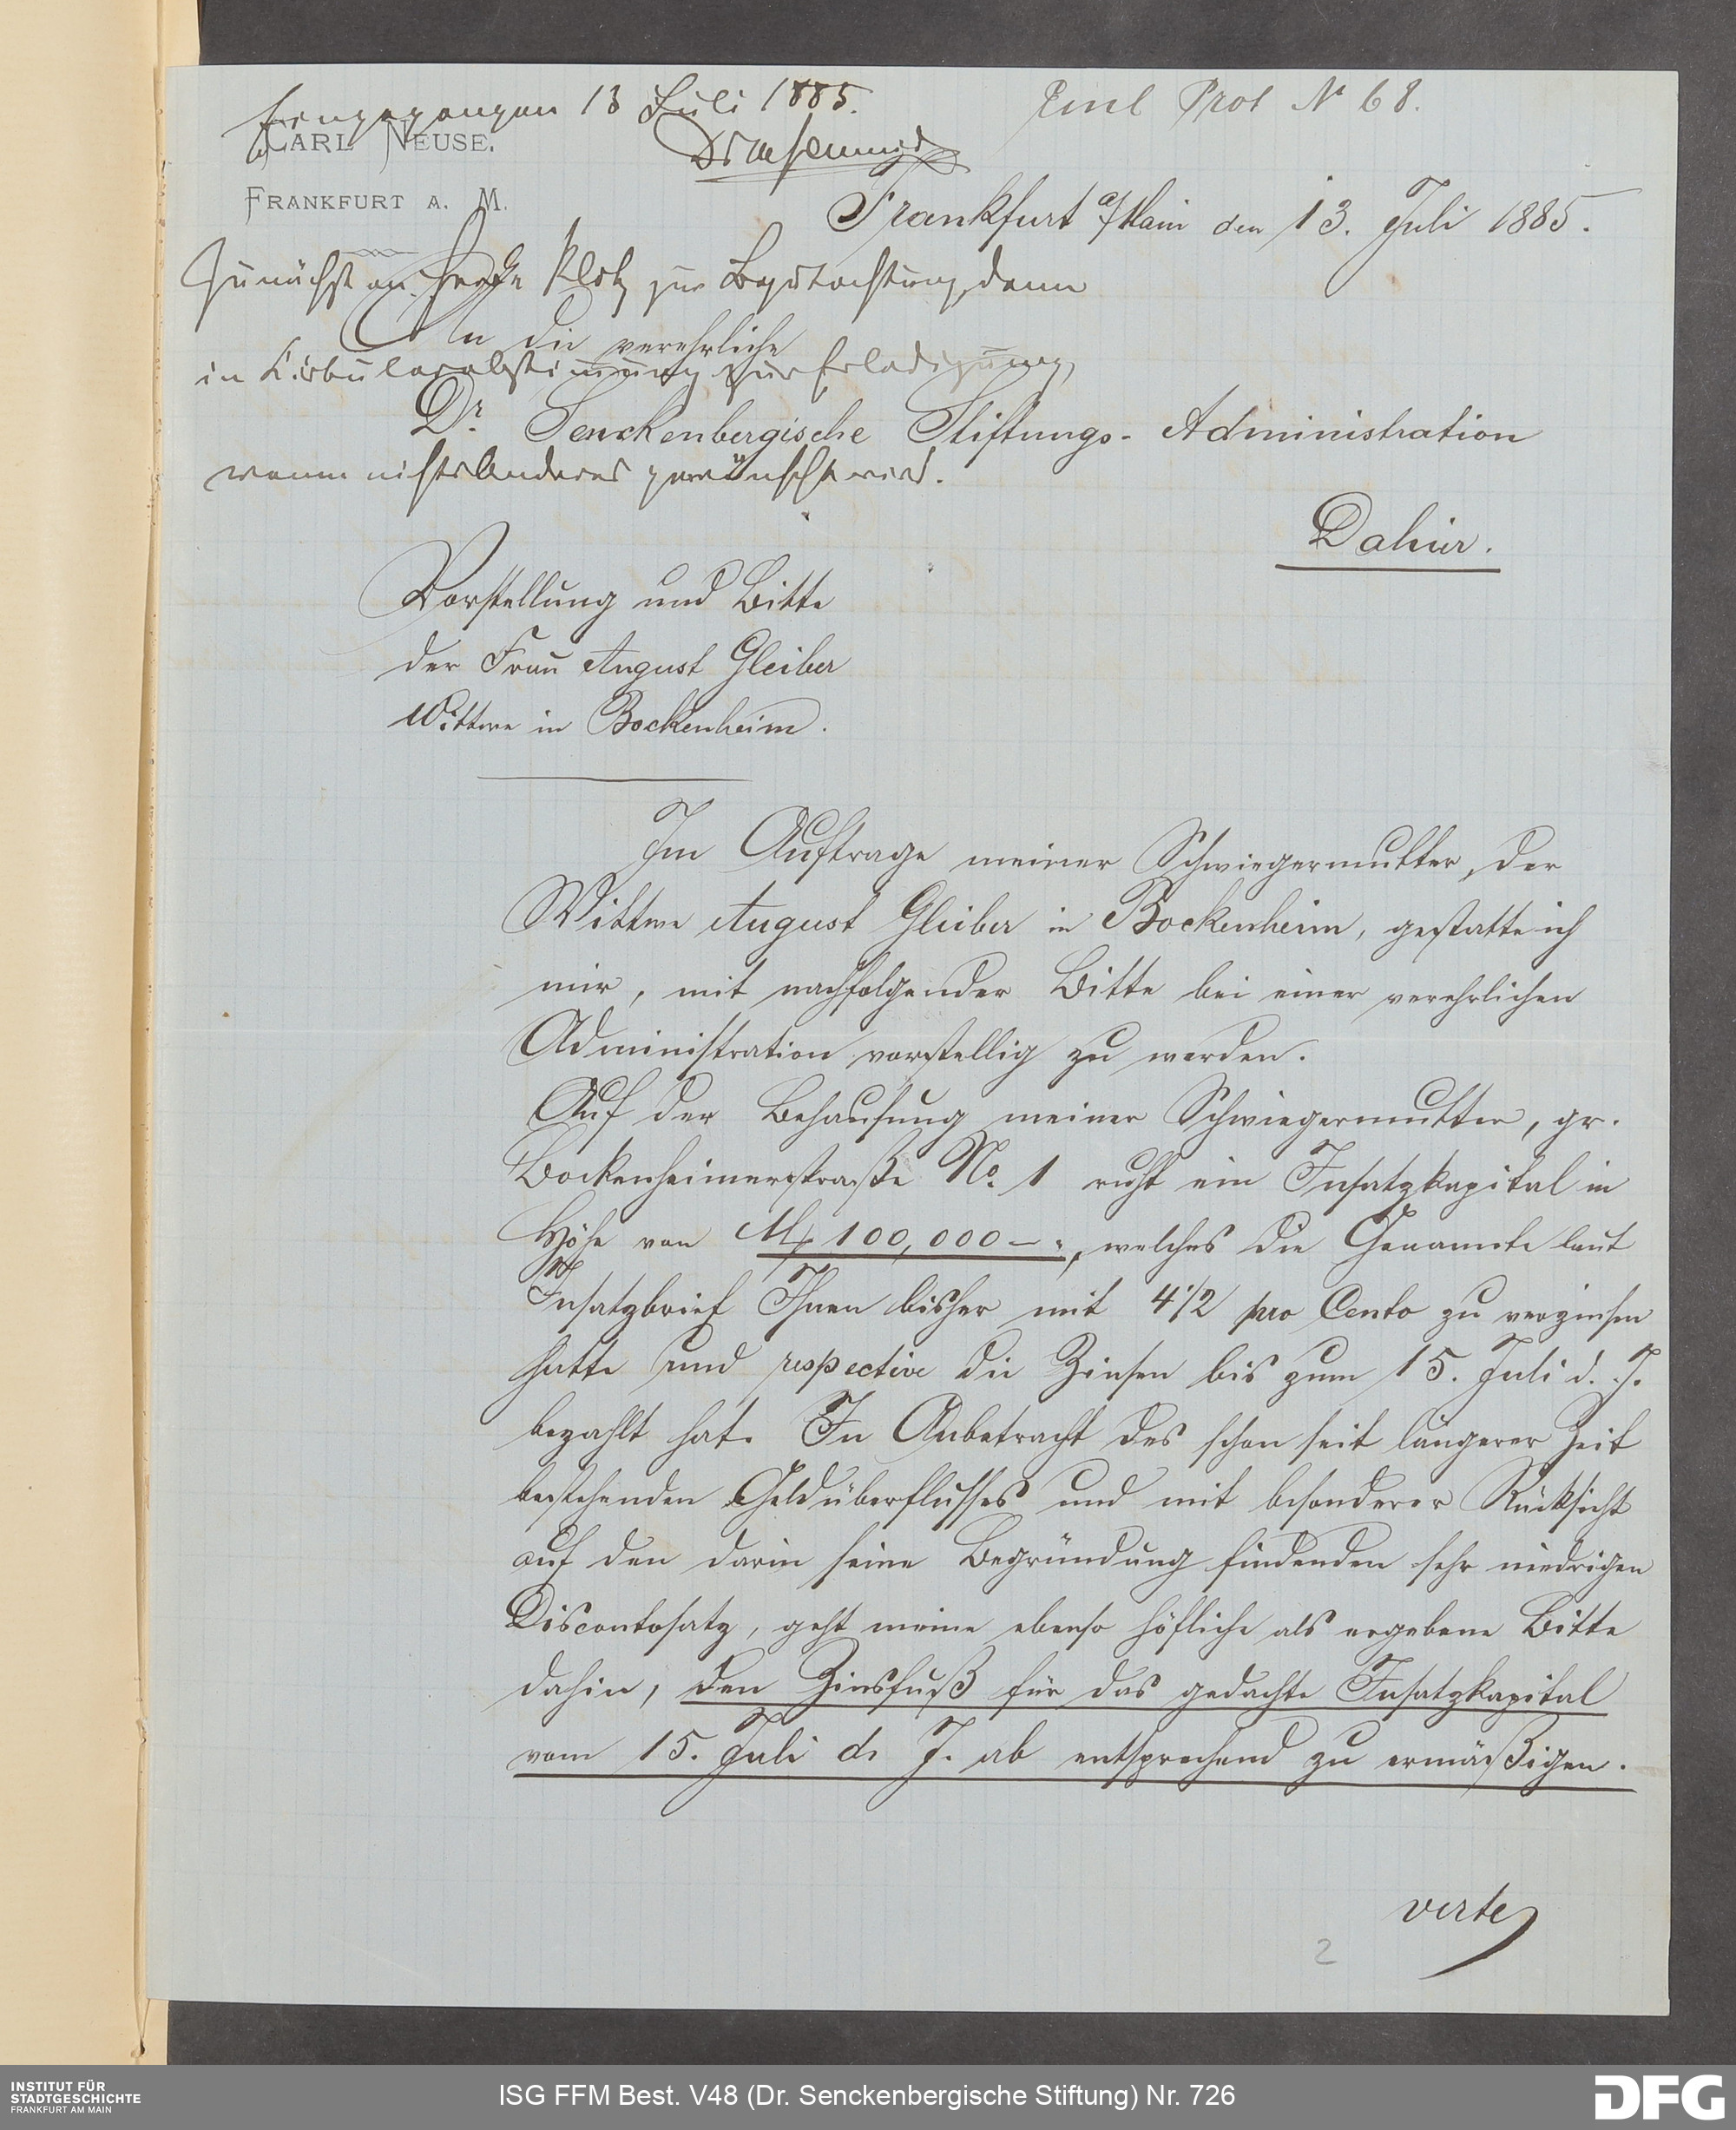 Eingegangen 13 Juli 1885.
Einl Prot No 68.
CARL NEUSE.
FRANKFURT A. M.
Frankfurt a/Main den 13. Juli 1885.
Zunächst an Klotz zur Begutachtung, dann
An die verehrliche
in Zirkularabstimmung zur Erledigung,
Dr. Senckenbergische Stiftungs-Administration
wenn nichts Anderes gewünscht wird.
Dahier.
Vorstellung und Bitte
der Frau August Gleiber
Wittwe in Bockenheim.
Im Auftrage meiner Schwiegermutter, der
Wittwe August Gleiber in Bockenheim, gestatte ich
mir, mit nachfolgender Bitte bei einer verehrlichen
Administration vorstellig zu werden.
Auf der Behausung meiner Schwiegermutter, gr.
Bockenheimerstraße No. 1 ruht ein Insatzkapital in
Höhe von M. 100,000 –, welches die Genannte laut
Insatzbrief Ihnen bisher mit 4 1/2 pro Cento zu verzinsen
hatte und respective die Zinsen bis zum 15. Juli d. J.
bezahlt hat. In Anbetracht des schon seit längerer Zeit
bestehenden Geldüberflusses und mit besonderer Rücksicht
auf den darin seine Begründung findenden sehr niedrigen
Discontosatz, geht meine ebenso höfliche als ergebene Bitte
dahin, den Zinsfuß für das gedachte Insatzkapital
vom 15. Juli d. J. ab entsprechend zu ermäßigen.
verte
2
INSTITUT FÜR
STADTGESCHICHTE
FRANKFURT AM MAIN
ISG FFM Best. V48 (Dr. Senckenbergische Stiftung) Nr. 726
DFG